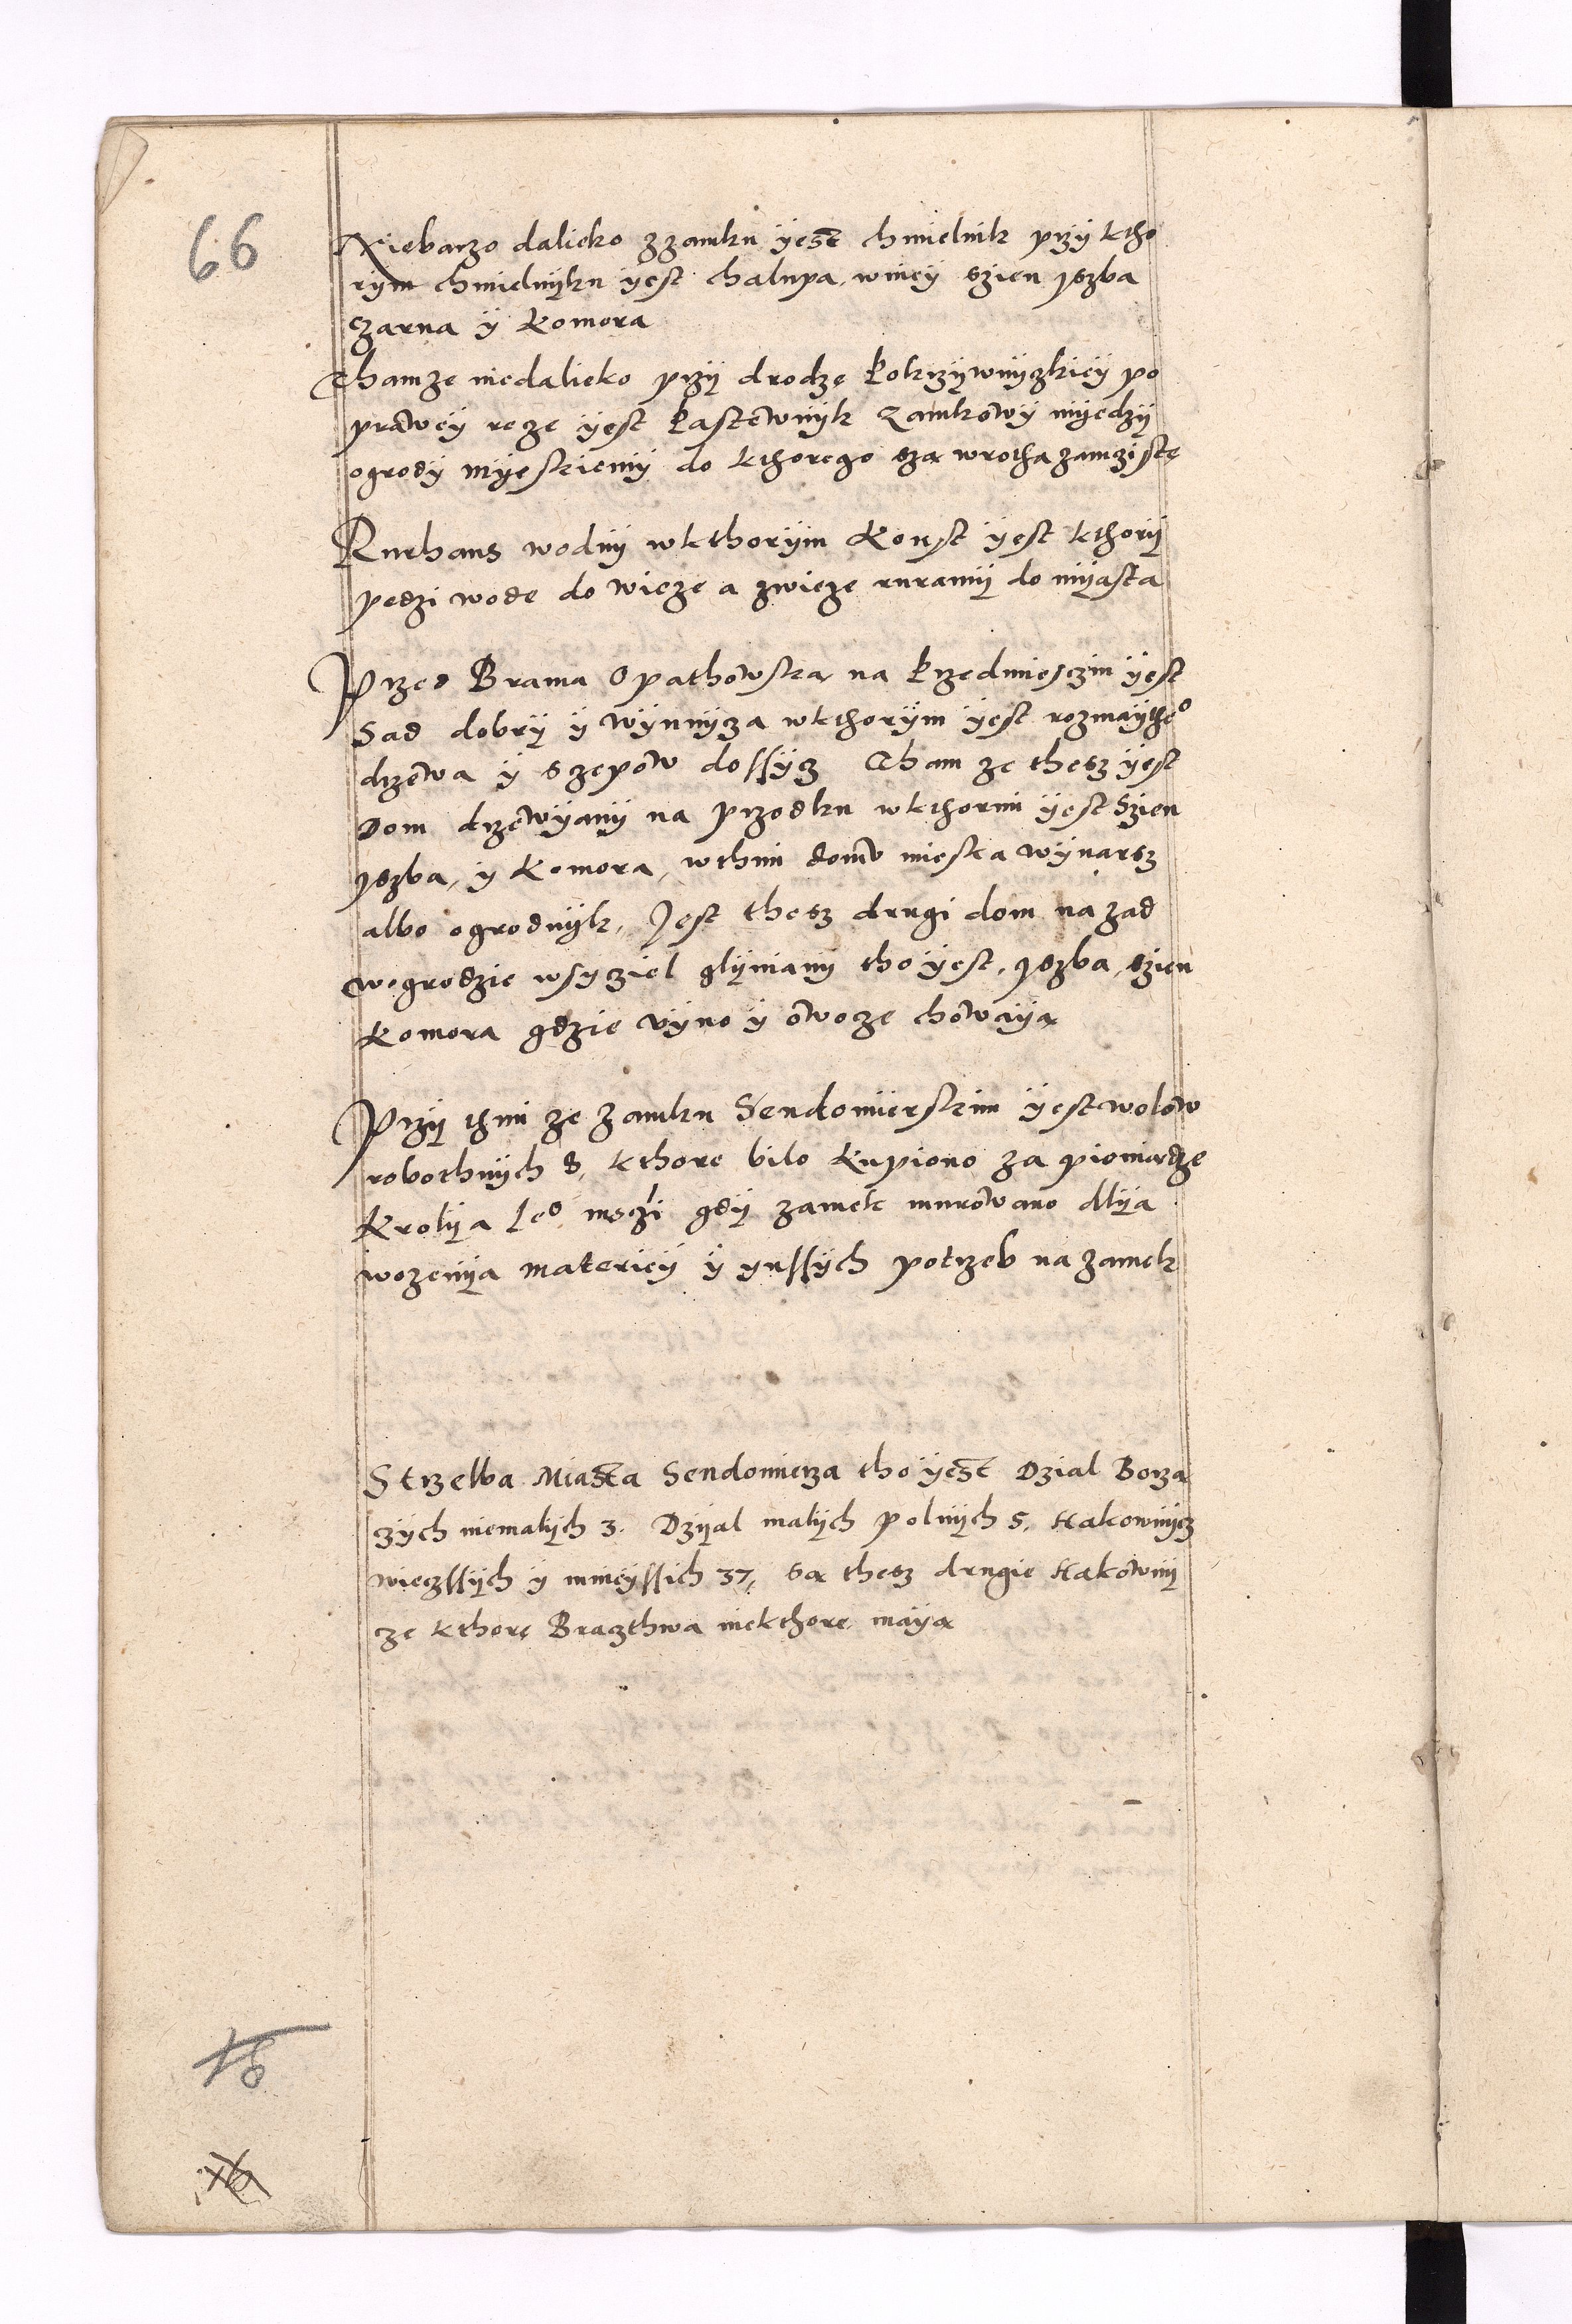 66
Niebarzo dalieko zzamku yest chmielnik przy ktho
rym chmielnyku yest chalupa, winey szien yszba
czarna y Komora
Thamze niedalieko przy drodze Pokrzywnyczkiey po
prawey rcze yest Pastewnyk Zamkowy myedzy
ogrody myeskiemy do kthorego sza wrotha zamczÿste
Rurhaus wodny wkthorym Konst yest kthory
pedzi wode do wieze a zwieze ruramy do myasta
Przed Brama Opathowska na Przedmiesczin yest
Sad dobry y wynnyza wkthorym yest rozmaythe⁰
drzewa y szepow dossycz Tham ze thesz yest
Dom drzewyany na przodku wkthorim yest Szien
yszba, y Komora, wthim domu mieska wynarsz
albo ogrodnyk, Jest thesz drugi dom na zad
wogrodzie wsyziek glyniany tho yest, yszba, szien
Komora gdzie vyno y owoze chowaya
Przy thim ze zamku Sendomierskim yest wolow
robothnych 8, kthore bilo kupiono za pieniadze
Krolya Je⁰ mczi gdy zamek murowano dlya
wozenya materiey y ynssych potrzeb na zamek
Strzelba Miasta Sendomierza tho yest Dzial Borza
zych niemalych 3. Dzyal malych polnych 5, Hakownycz
wieczssych y mnieyssich 37, sa thesz drugie Hakowny
ze kthore Braczthwa niekthore maya
18